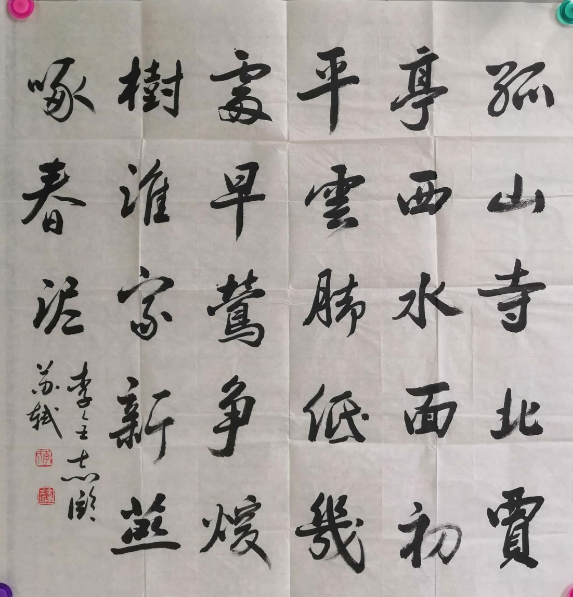 孤山寺北賈
亭西水面初
平雲腳低幾
處早鶯争煖
樹誰家新燕
啄春泥
苏轼